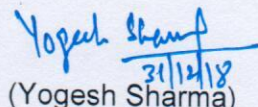 Yogesh Sharma
31/12/18
(Yogesh Sharma)